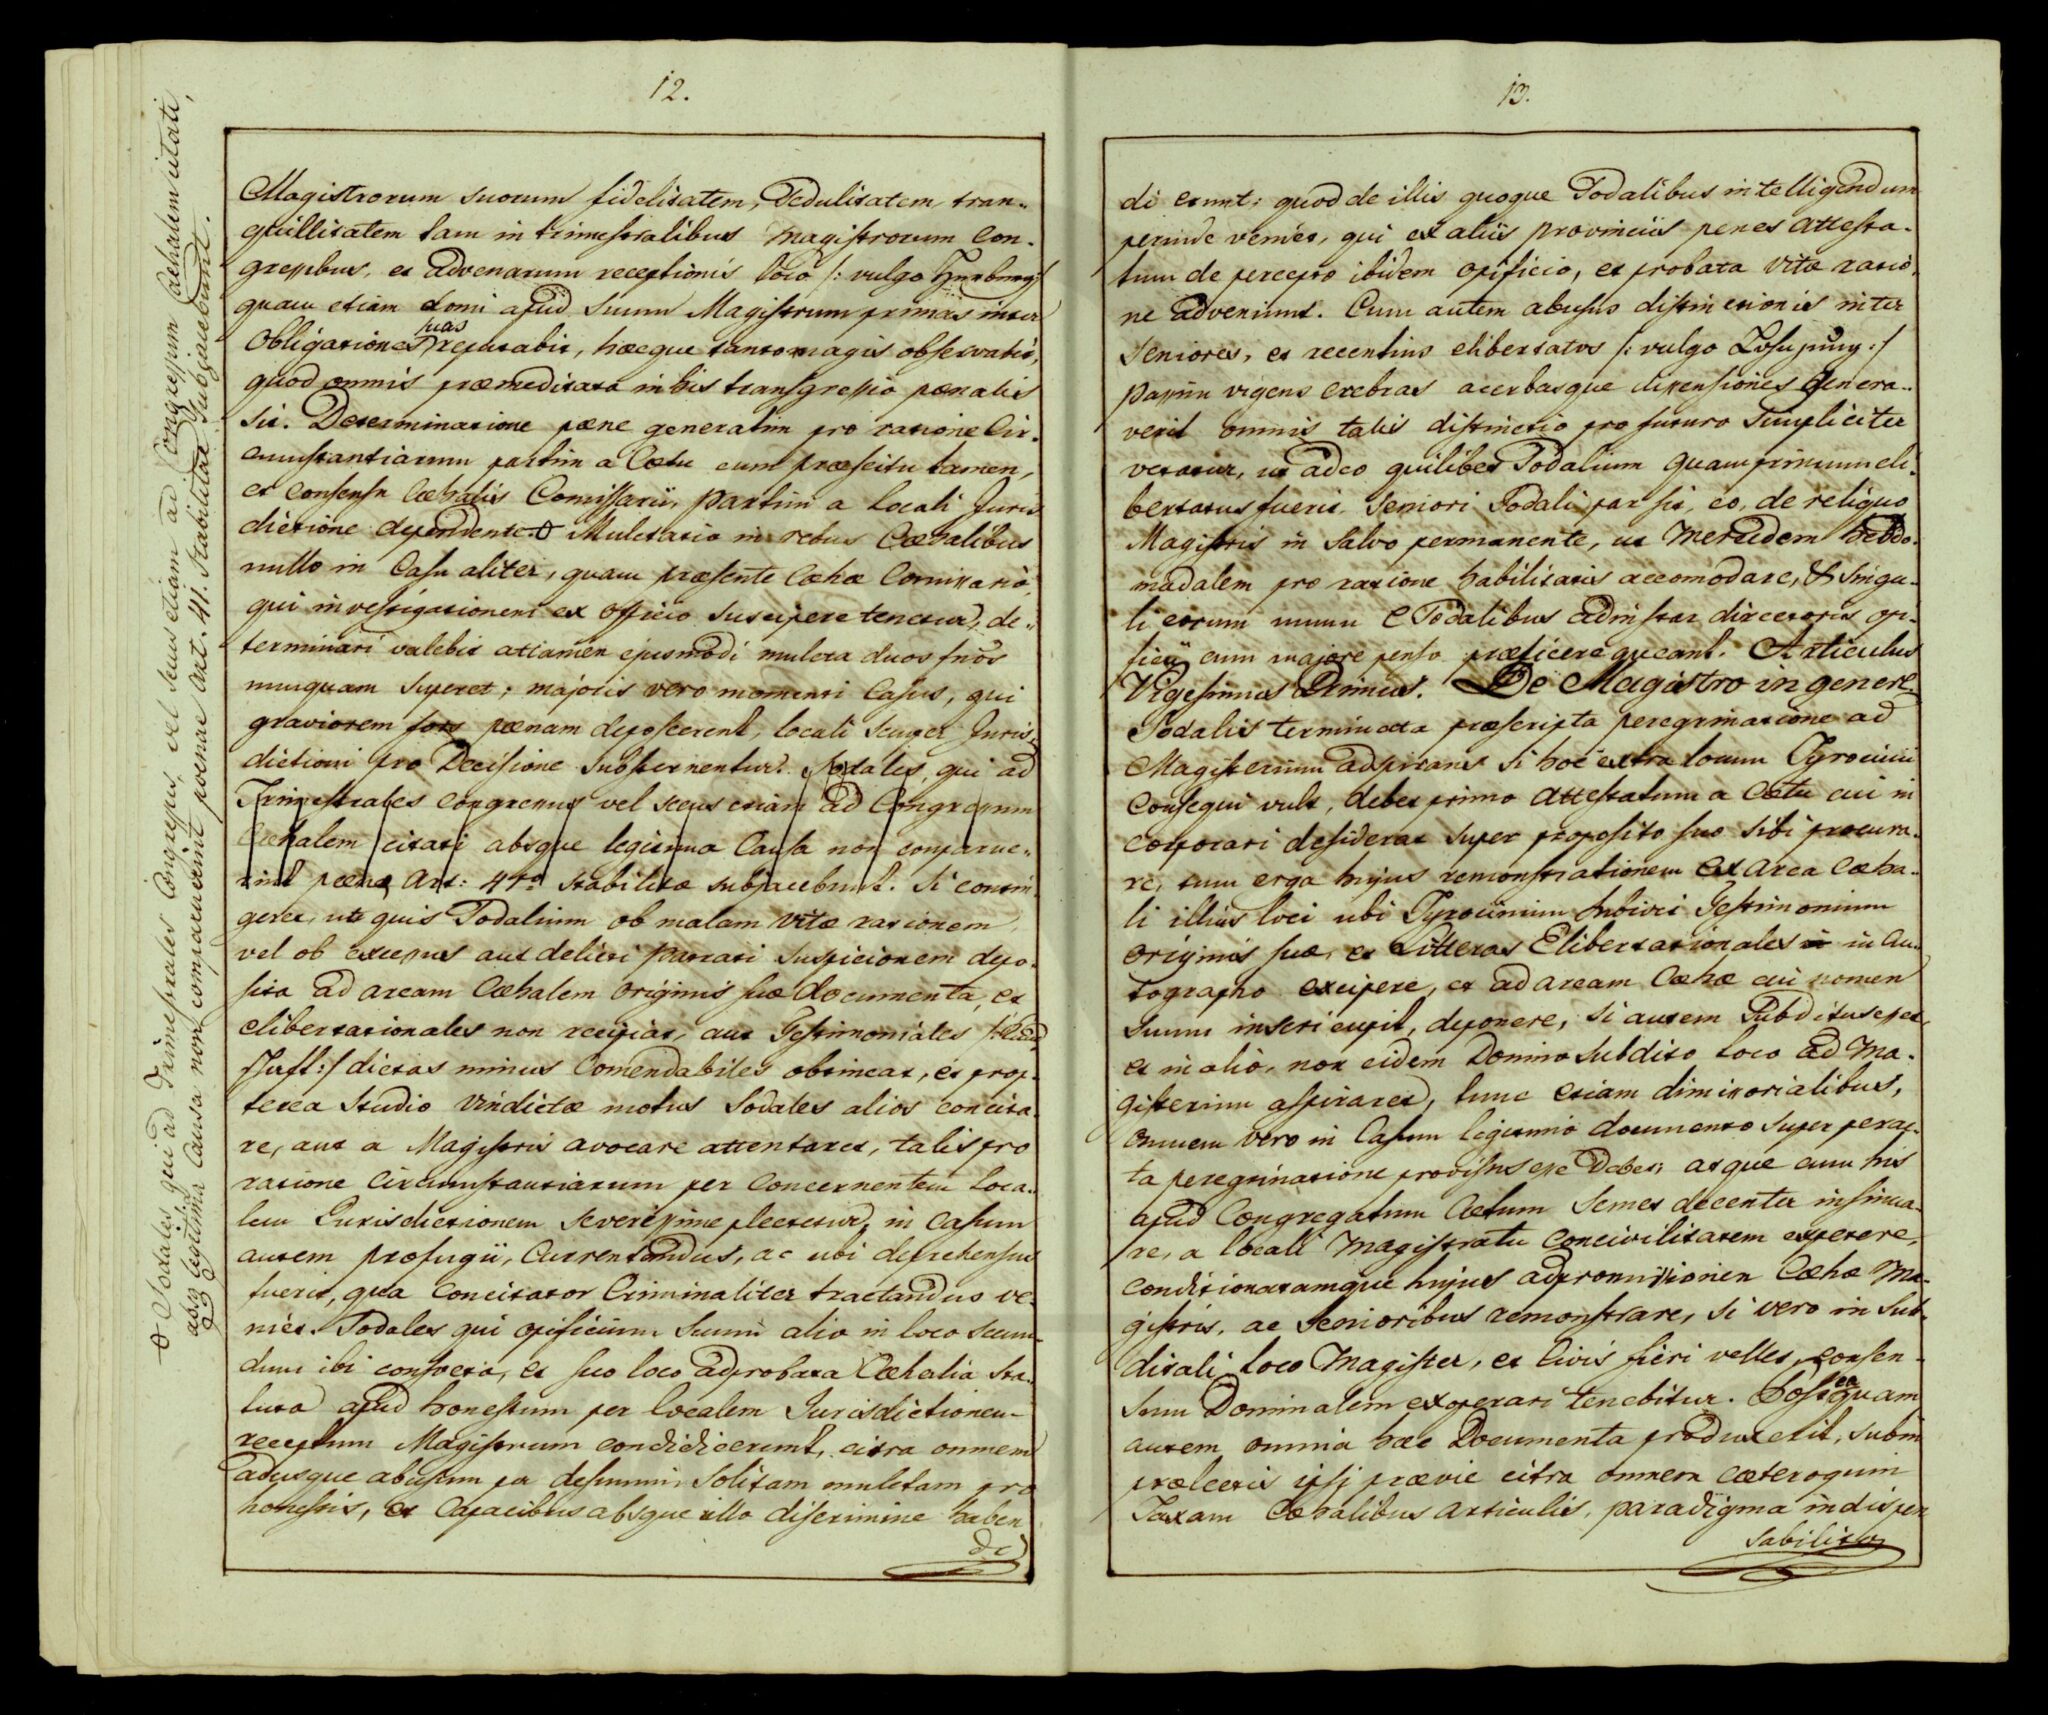 12.
Magistrorum suorum fidelitatem, Sedulitatem, tran-
quillitatem tam in trimestralibus Magistrorum Con-
gressibus, et advenarum receptionis loco /: vulgo Herberg :/
quam etiam domi apud suum Magistrum primas inter
Obligationes suas reputabit, hæcque tanto magis observabit,
quod omnis præmeditata in his transgressio pœnalis
sit. Determinatione pœne generatim pro ratione Cir-
cumstantiarum partim a Cœtu cum præscitu tamen,
et consensu Cæhalis Comissarii, partim a locali Juris
dictione dependente. Mulctatio in rebus Cæhalibus
nullo in Casu aliter, quam præsente Cæhæ Comissario,
qui investigationem ex officio suscipere tenetur, de-
terminari valebit attamen ejusmodi mulcta duos fnos
nunquam superet; majoris vero momenti Casus, qui
graviorem fors pœnam deposcerent, locali semper Juris-
dictioni pro Decisione substernentur. Sodales, qui ad
Trimestrales congressus vel secus etiam ad Congressum
Cæhalem citati absque legitima Causa non comparue-
rint pœnæ Art: 41o stabilitæ subjacebunt. Si contin-
geret, ut quis Sodalium ob malam vitæ rationem,
vel ob excessus aut delicti patrati suspicionem depo-
sita ad arcam Cæhalem originis suæ documenta, et
elibertationales non recipiat, aut Testimoniales /:
:/ dictas minus Comendabiles obtineat, et prop-
terea studio vindictæ motus Sodales alios concita-
re, aut a Magistris avocare attentaret, talis pro
ratione Circumstantiarum per Concernentem Loca-
lem Jurisdictionem severissime plectetur, in casum
autem profugii, Currentandus, ac ubi deprehensus
fuerit, qua Concitator Criminaliter tractandus ve-
niet. Sodales qui opificium suum alio in loco secun-
dum ibi consveta, et suo loco adprobata Cæhalia sta-
tuta apud honestum per localem Jurisdictionem
receptum Magistrum condidicerunt, citra omnem
adusque abusum per desummi solitam mulctam pro
honestis, et Capacibus absque ullo discrimine haben
di
Sodales qui ad Trimestrales Congressus, vel secus etiam ad Congressum Cæhalem citati,
absq legitima Causa non comparuerint poenae Art. 41. Stabilitae Subjacebunt.
13.
di erunt; quod de illis quoque Sodalibus intelligendum
perinde veniet, qui ex aliis provinciis penes attesta-
tum de percepto ibidem opificio, et probata vitæ ratio-
ne adveniunt. Cum autem abusus distinctionis inter
Seniores, et recentius elibertatos /: vulgo :/
passim vigens crebras acerbasque dissensiones genera-
verit omnis talis distinctio pro futuro Simpliciter
vetatur, ut adeo quilibet Sodalium quamprimum eli-
bertatus fuerit, seniori Sodali par sit, eo, de reliquo
Magistris in salvo permanente, ut Mercedem hebdo-
madalem pro ratione habilitatis accomodare, & singu-
li eorum unum e Sodalibus adinstar directoris opi-
ficij cum majore penso præficere queant. Articulus
Vigesimus Primus. De Magistro in genere.
Sodalis terminata præscripta peregrinatione ad
Magisterium adspirans si hoc extra locum Tyrocinii
consequi vult, debet primo attestatum a Cœtu cui in
corporari desiderat super proposito suo sibi procura-
re, tum erga hujus remonstrationem ex arca cæha-
li illius loci ubi Tyrocinium subivit Testimonium
originis suæ, et Litteras Elibertationales in Au-
tographo excipere, et ad arcam Cæhæ cui nomen
suum inseri cupit, deponere, si autem Subditus esset,
et in alio, non eidem Domino subdito loco ad Ma-
gisterium aspiraret, tunc etiam dimissorialibus,
omnem vero in Casum legitimo documento super perac-
ta peregrinatione provisus esse Debet; atque cum his
apud Congregatum Cœtum Semet decenter insinua-
re, a locali Magistratu Concivilitatem expetere,
conditionatamque hujus adpromissionem Cæhæ Ma-
gistris, ac senioribus remonstrare, si vero in sub-
ditali loco Magister, et Civis fieri vellet, consen-
sum Dominalem exoperari tenebitur. Posteaquam
autem omnia hæc Documenta produxerit, submi
ipsj prævie citra omnem cæteroquin
Taxam Cæhalibus articulis, paradigma indispen
sabiliter